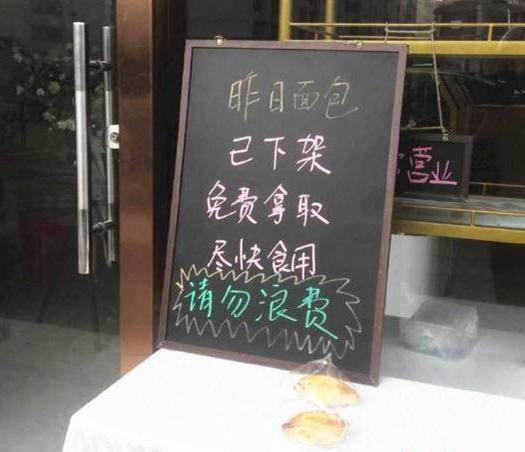 昨日面包
己下架
免费拿取
尽快食用
请勿浪费
营业